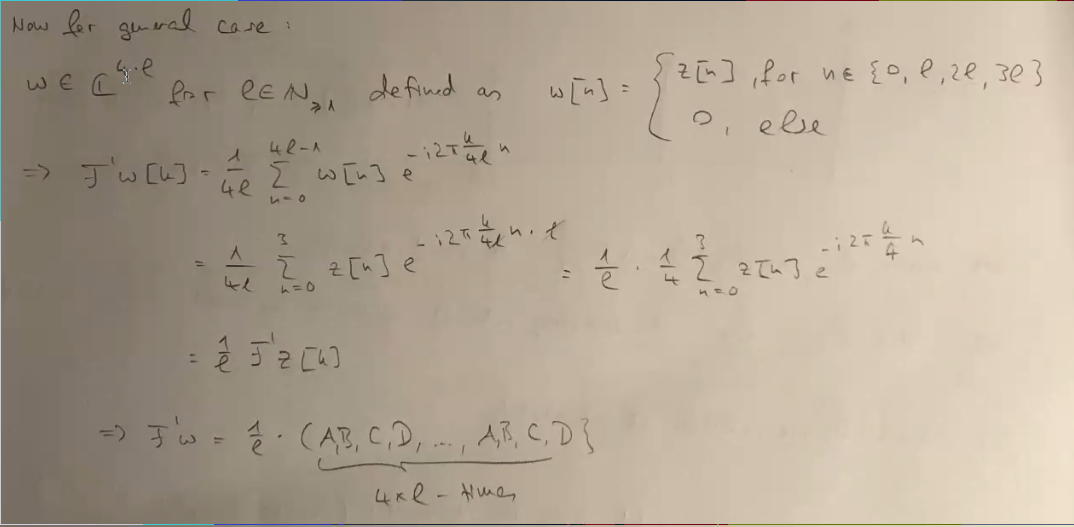 Now for general case :
w ∈ ℂ^{4·ℓ} for ℓ ∈ ℕ_{≥1} defined as w[n] = { z[n], for n ∈ {0, ℓ, 2ℓ, 3ℓ}
0, else
=> F'w[k] = 1/4ℓ ∑_{n=0}^{4ℓ-1} w[n] e^{-i2π k/4ℓ n}
= 1/4ℓ ∑_{n=0}^{3} z[n] e^{-i2π k/4ℓ n·ℓ} = 1/ℓ · 1/4 ∑_{n=0}^{3} z[n] e^{-i2π k/4 n}
= 1/ℓ F'z[k]
=> F'w = 1/ℓ · (A,B,C,D, ..., A,B,C,D}
4×ℓ - times